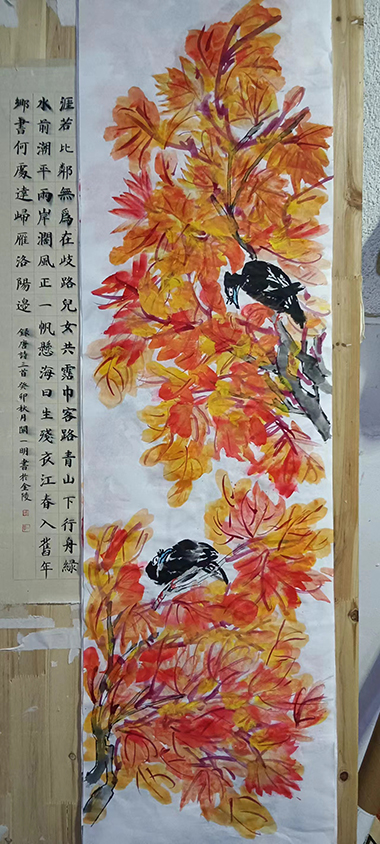 涯若比鄰無爲在歧路兒女共霑巾客路青山下行舟綠
水前潮平兩岸闊風正一帆懸海日生殘夜江春入舊年
鄉書何處達歸雁洛陽邊
錄唐詩三首癸卯秋月閻一明書於金陵